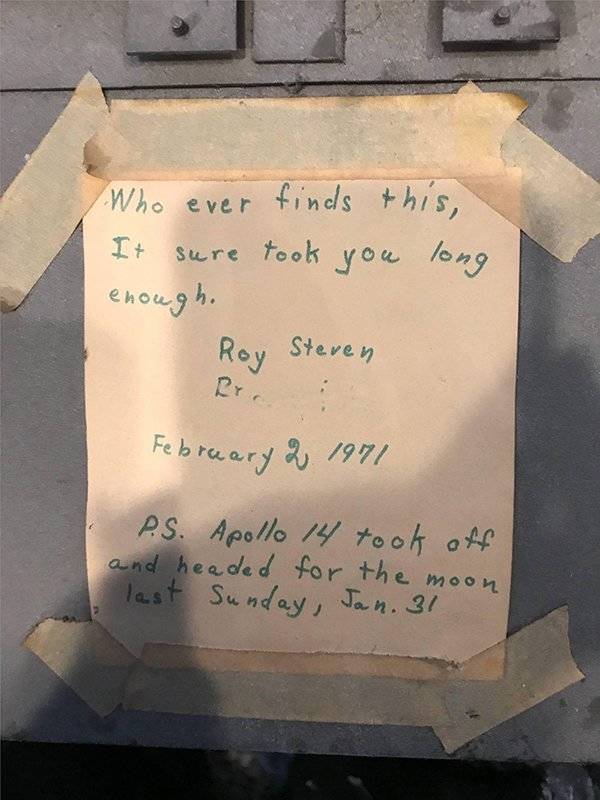 Who ever finds this,
It sure took you long
enough.
Roy Steven
February 2, 1971
P.S. Apollo 14 took off
and headed for the moon
last Sunday, Jan. 31